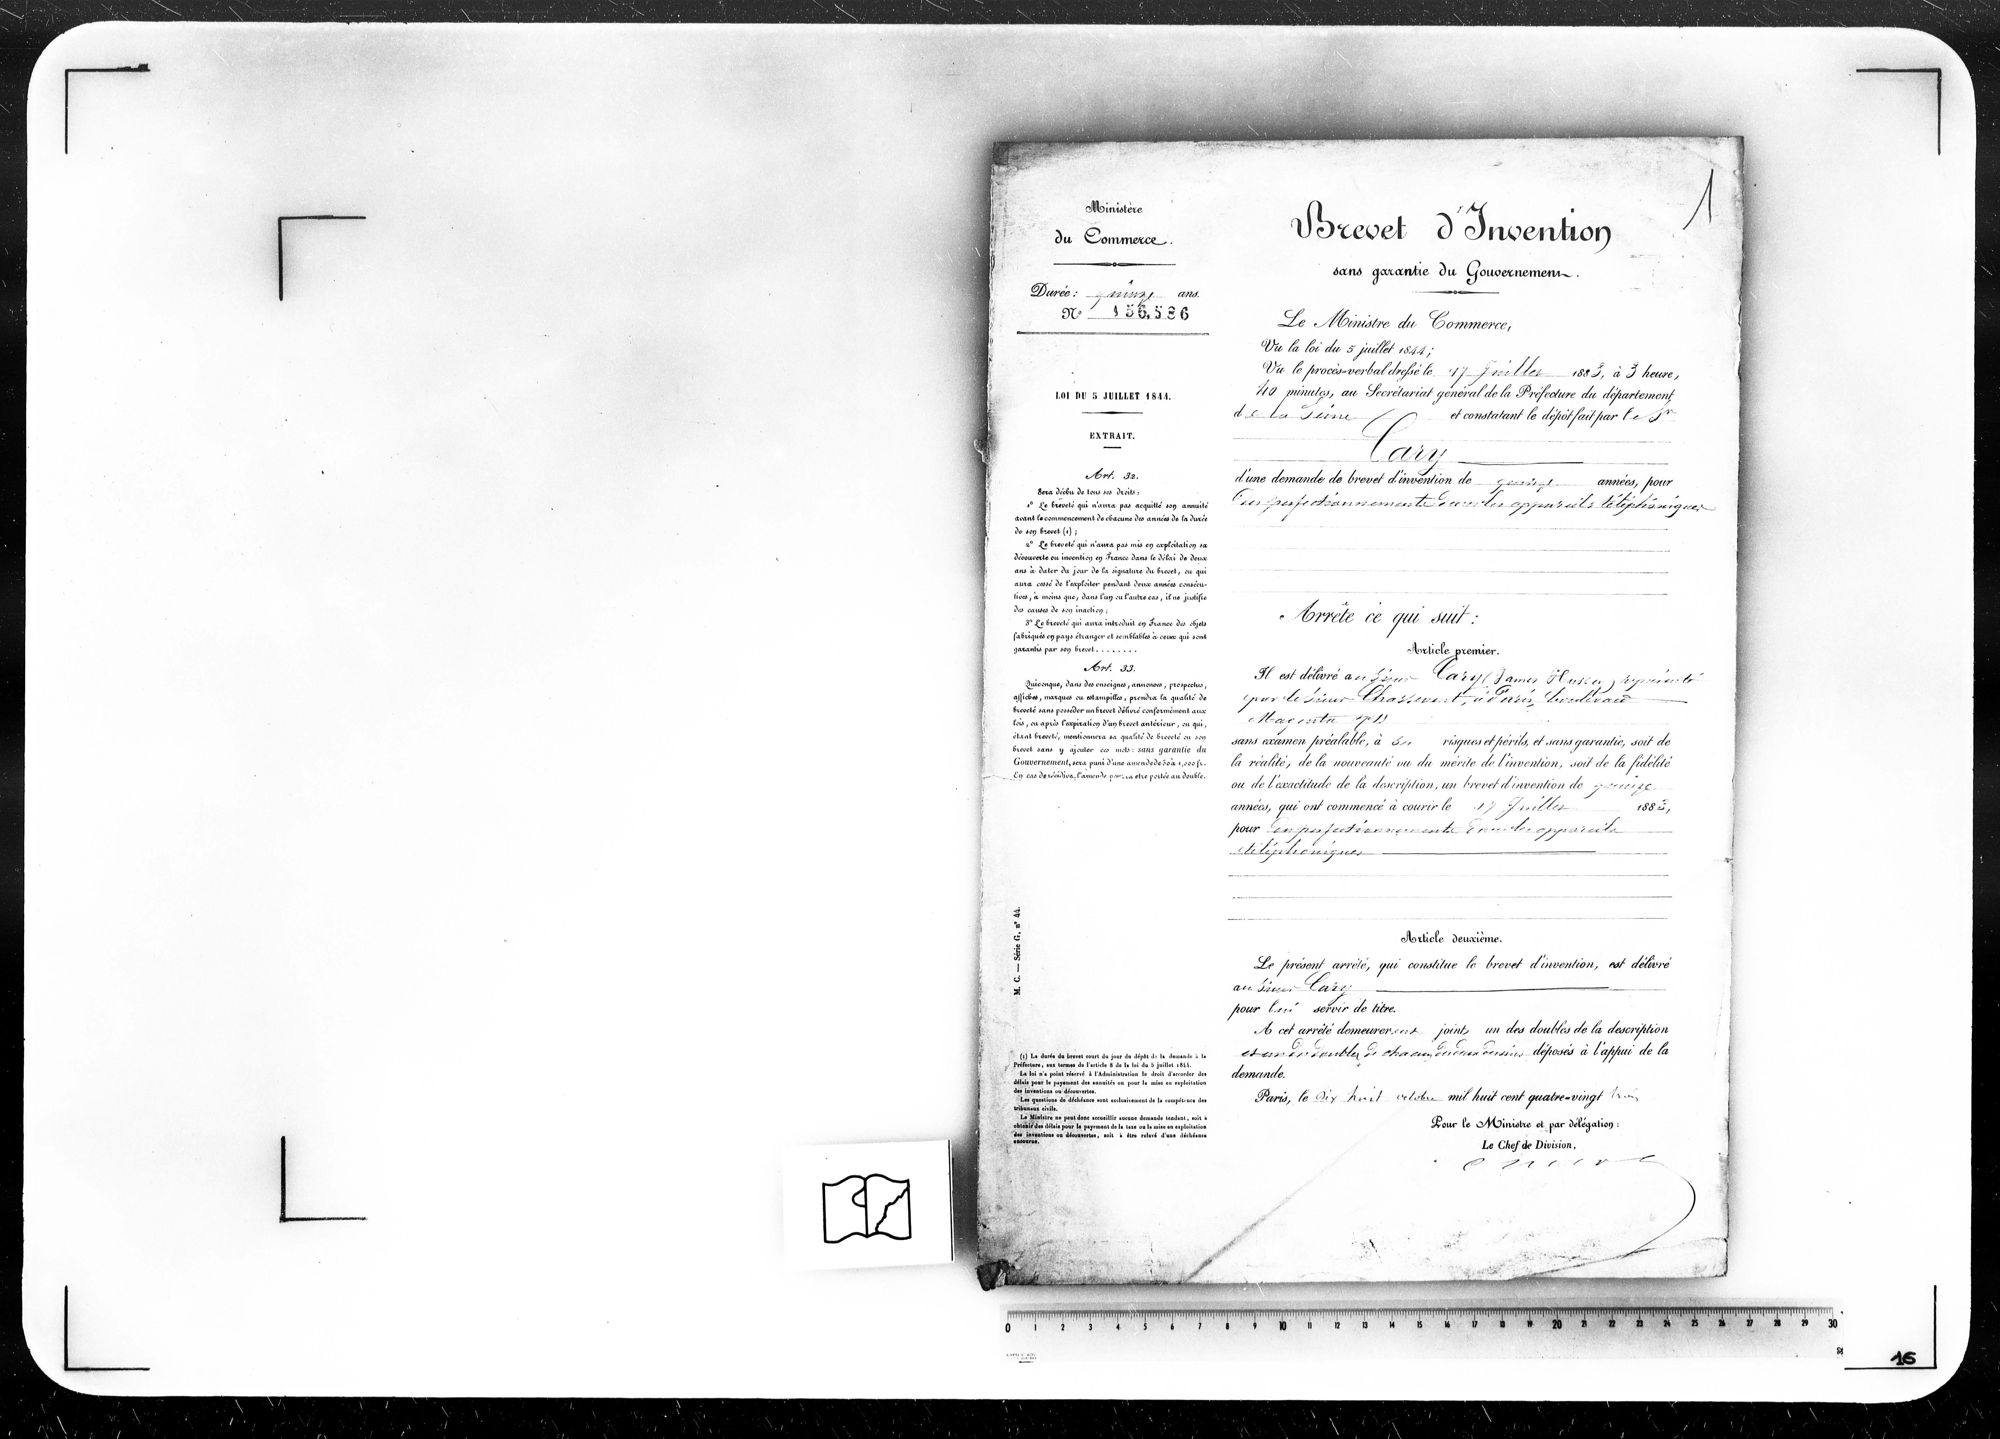 Ministère
du Commerce.
Durée: quinze ans.
N° 156,586
LOI DU 5 JUILLET 1844.
EXTRAIT.
Art. 32.
Sera déchu de tous ses droits:
1° Le breveté qui n'aura pas acquitté son annuité
avant le commencement de chacune des années de la durée
de son brevet (1);
2° Le breveté qui n'aura pas mis en exploitation sa
découverte ou invention en France dans le délai de deux
ans à dater du jour de la signature du brevet, ou qui
aura cessé de l'exploiter pendant deux années consécu-
tives, à moins que, dans l'un ou l'autre cas, il ne justifie
des causes de son inaction;
3° Le breveté qui aura introduit en France des objets
fabriqués en pays étranger et semblables à ceux qui sont
garantis par son brevet........
Art. 33.
Quiconque, dans des enseignes, annonces, prospectus,
affiches, marques ou estampilles, prendra la qualité de
breveté sans posséder un brevet délivré conformément aux
lois, ou après l'expiration d'un brevet antérieur, ou qui,
étant breveté, mentionnera sa qualité de breveté ou son
brevet sans y ajouter ces mots: sans garantie du
Gouvernement, sera puni d'une amende de 50 à 1,000 fr.
En cas de récidive, l'amende pourra être portée au double.
M. C. — Série G, n° 44.
(1) La durée du brevet court du jour du dépôt de la demande à la
Préfecture, aux termes de l'article 8 de la loi du 5 juillet 1844.
La loi n'a point réservé à l'Administration le droit d'accorder des
délais pour le payement des annuités ou pour la mise en exploitation
des inventions ou découvertes.
Les questions de déchéance sont exclusivement de la compétence des
tribunaux civils.
Le Ministre ne peut donc accueillir aucune demande tendant, soit à
obtenir des délais pour le payement de la taxe ou la mise en exploitation
des inventions ou découvertes, soit à être relevé d'une déchéance
encourue.
1
Brevet d'Invention
sans garantie du Gouvernement.
Le Ministre du Commerce,
Vu la loi du 5 juillet 1844;
Vu le procès-verbal dressé le 17 Juillet 1883, à 3 heure,
40 minutes, au Secrétariat général de la Préfecture du département
de la Seine et constatant le dépôt fait par le Sr
Cary
d'une demande de brevet d'invention de quinze années, pour
des perfectionnements dans les appareils téléphoniques
Arrête ce qui suit:
Article premier.
Il est délivré au Sieur Cary (James ) représenté
par le sieur Chassevent, à Paris, boulevard
Magenta
sans examen préalable, à ses risques et périls, et sans garantie, soit de
la réalité, de la nouveauté ou du mérite de l'invention, soit de la fidélité
ou de l'exactitude de la description, un brevet d'invention de quinze
années, qui ont commencé à courir le 17 Juillet 1883,
pour des perfectionnements dans les appareils
téléphoniques
Article deuxième.
Le présent arrêté, qui constitue le brevet d'invention, est délivré
au Sieur Cary
pour lui servir de titre.
A cet arrêté demeureront joints un des doubles de la description
et un des doubles de chacun des deux dessins déposés à l'appui de la
demande.
Paris, le dix huit octobre mil huit cent quatre-vingt trois
Pour le Ministre et par délégation:
Le Chef de Division,
0 1 2 3 4 5 6 7 8 9 10 11 12 13 14 15 16 17 18 19 20 21 22 23 24 25 26 27 28 29 30
16